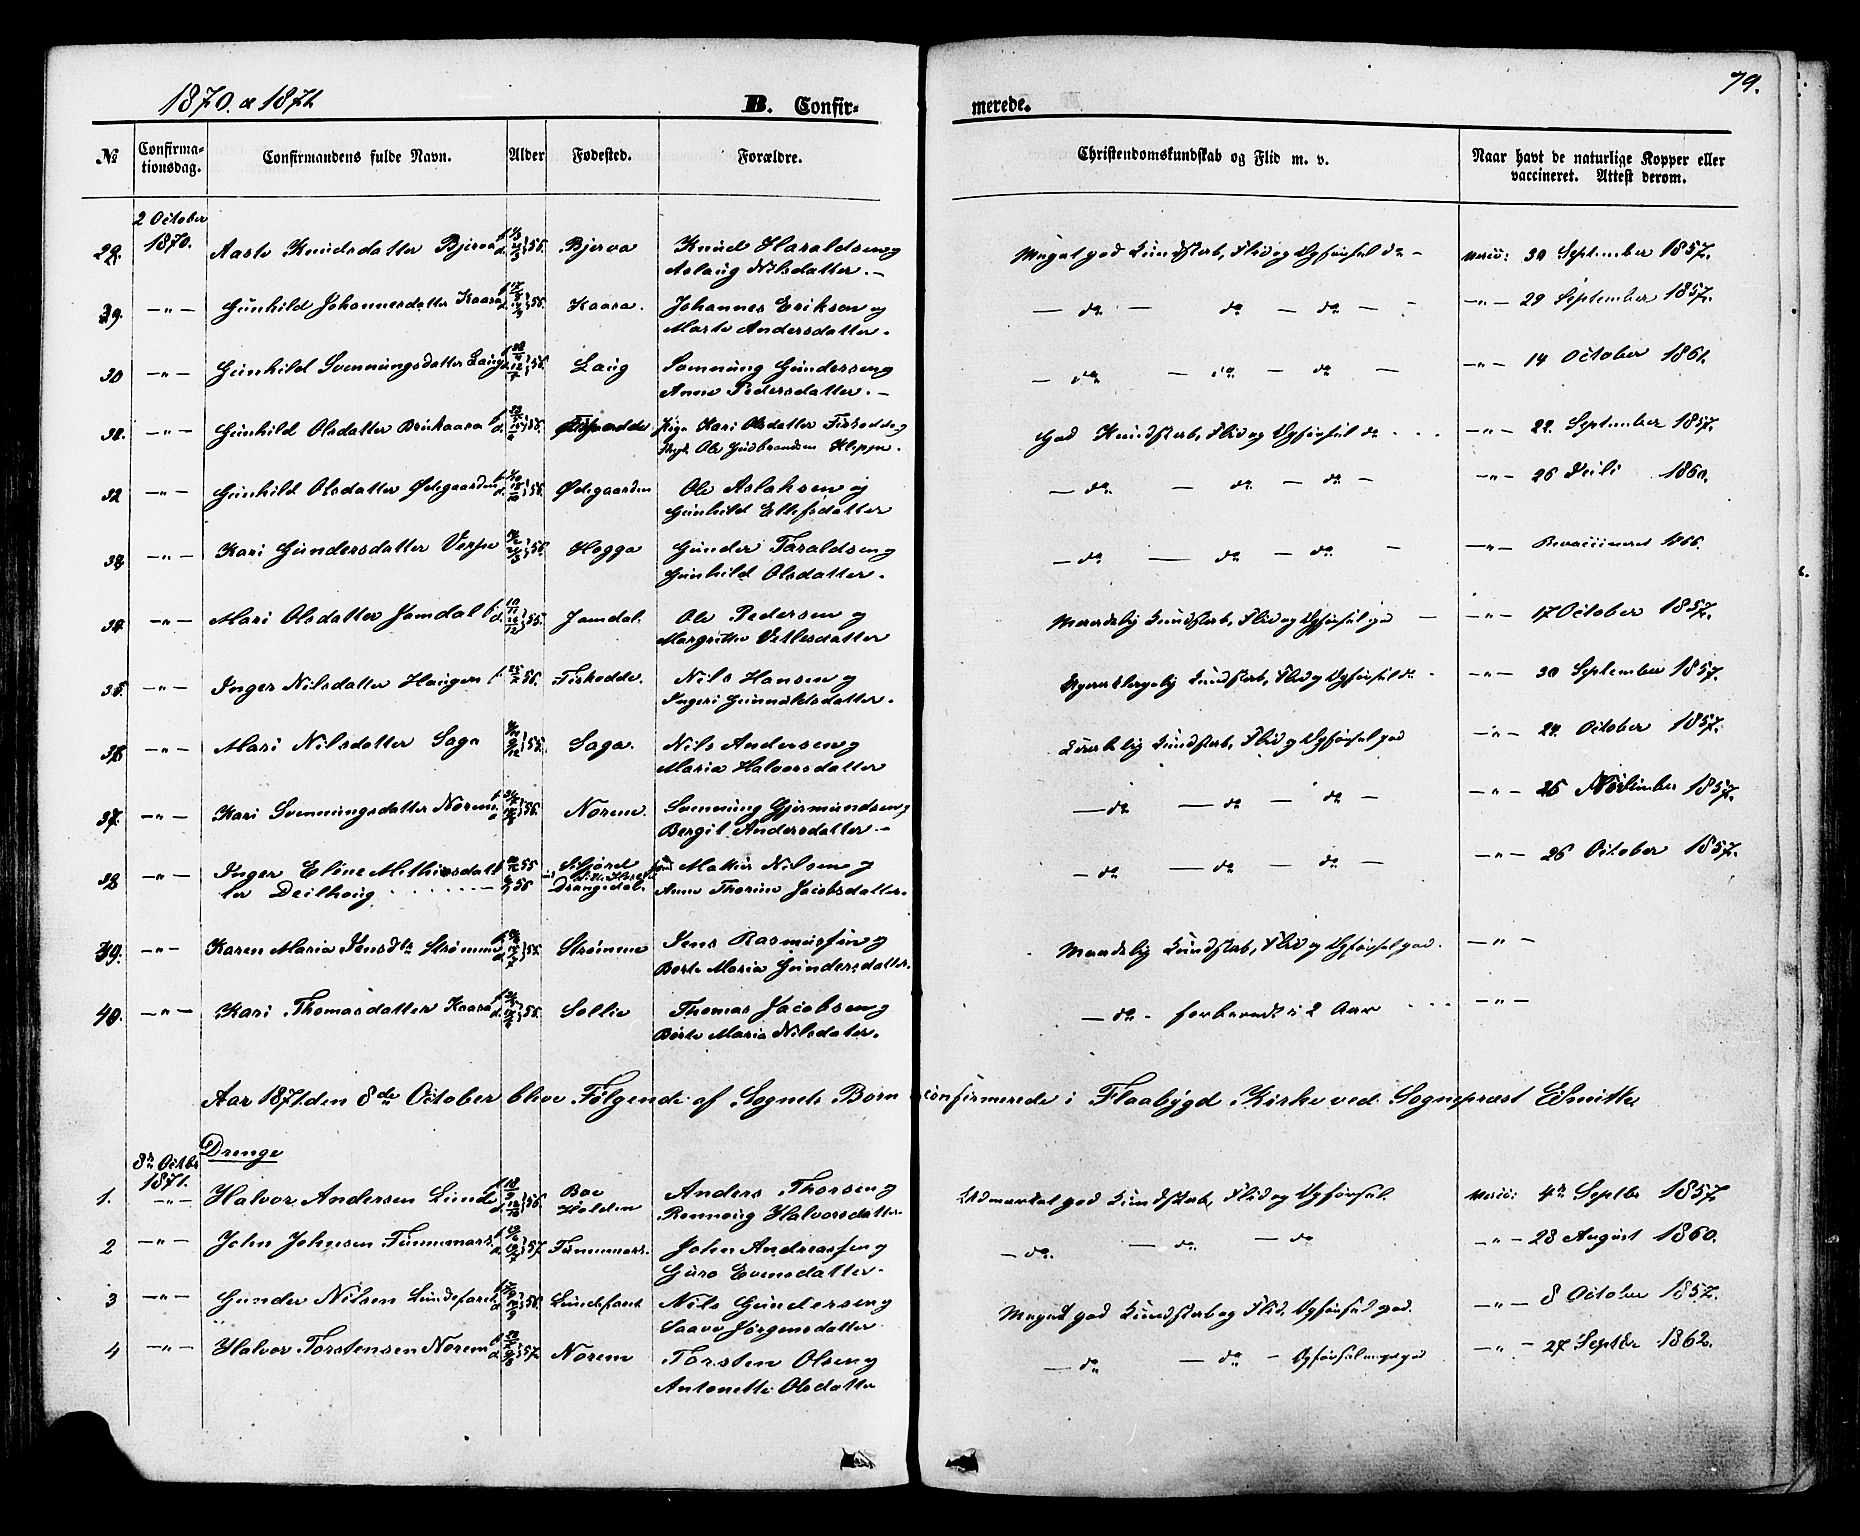 1870 & 1871
B. Confir-
merede.
79.
№
Confirma-
tionsdag.
Confirmandens fulde Navn.
Alder
Fødested.
Forældre.
Christendomskundskab og Flid m. v.
Naar havt de naturlige Kopper eller
vaccineret. Attest derom.
2 October
29. 1870. Aaste Knudsdatter Bjerva 55. Bjerva Knud Haraldsen og Meget god Kundskab, Flid og Opførsel do - 30 September 1857.
Aslaug Nilsdatter. -
29. - " - Gunhild Johannesdatter Kaasa 55. Kaasa. Johannes Eriksen og - do - do - do - - " - 29 September 1857.
Marte Andersdatter.
30 - " - Gunhild Svennungsdatter Laug 55. Laug Svennung Gundersen og - do - do - do - - " - 14 October 1861.
Anne Pedersdatter. -
31. - " - Gunhild Olsdatter 55. Pige Kari Olsdatter og God Kundskab, Flid og Opførsel do - " - 22. September 1857.
Ole Gudbrandsen Kleppe.
32 - " - Gunhild Olsdatter Ødegaarden 55. Ødegaarden Ole Aslaksen og - do. - do - do - - " - 26 Juli 1860.
Gunhild Ellefsdatter
33 - " - Kari Gundersdatter Verpe 56. Hogga Gunder Taraldsen og - do - do - do - - " - Revaccineret 1866.
Gunhild Olsdatter.
34. - " - Mari Olsdatter Jamdal 55. Jamdal. Ole Pedersen og Maadelig Kundskab, Flid og Opførsel god - - " - 17 October 1857.
Margrithe Vetlesdatter
35. - " - Inger Nilsdatter Haugen 56. Fiskodde. Nils Hansen og Kundskab, Flid og Opførsel do - " - 30 September 1857.
Ingeri Gunnuldsdatter.
36 - " - Mari Nilsdatter Saga 55. Saga. Nils Andersen og Kundskab, Flid og Opførsel god - " - 24. October 1857.
Maria Halvorsdatter
37. - " - Kari Svennungsdatter Norem 56. Norem. Svennung Gjermundsen og - do - do - do - - " - 25 November 1857.
Bergit Andersdatter -
38 - " - Inger Eline Mathisdat 55 Mathis Nilsen og - do - do - do - - " - 26 October 1857.
ter Deilhoug 56 Drangedal. Anne Thorine Jacobsdatter.
39. - " - Karen Maria Jensdtr Strømme 55. Strømme Jens Rasmussen og Maadelig Kundskab, Flid og Opførsel god. - " -
Berte Maria Gundersdatter.
40. - " - Kari Thomasdatter Kaasa 55. Sollie Thomas Jacobsen og - do - forberedt i 2 Aar - " -
Berte Maria Nilsdatter.
Aar 1871 den 8de October bleve Følgende af Sognets Børn confirmerede i Flaabygd Kirke ved Sognepræst
Drenge
8de Octbr
1871.
1. - " - Halvor Andersen Lunde 56. Bøe Anders Thorsen og Udmærket god Kundskab, Flid og Opførsel. Vacc: 4de Septbr 1857
Holden Rønnoug Halvorsdatter
2 - " - John Johnsen 57 John Andreassen og - do. - do - do - " - 28 August 1860.
Guro Evensdatter
3 - " - Gunder Nilsen Lundefaret 56. Lundefaret Nils Gundersen og Meget god Kundskab og Flid. Opførsel god. - " - 8 October 1857.
Saave Jørgensdatter
4 - " - Halvor Torstensen Norem 57. Norem Torsten Olsen og - do - do - Opførsel god - " - 27 Septbr 1862.
Antonette Olsdatter